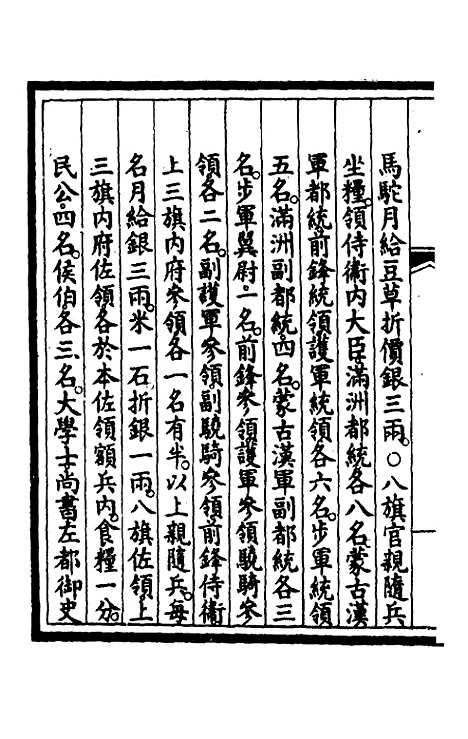 馬駝月給豆草折價銀三兩。○八旗官親隨兵
坐糧。領侍衛內大臣。滿洲都統各八名。蒙古漢
軍都統。前鋒統領。護軍統領各六名。步軍統領
五名。滿洲副都統。四名。蒙古漢軍副都統各三
名。步軍翼尉。一名。前鋒參領。護軍參領。驍騎參
領各二名。副護軍參領。副驍騎參領。前鋒侍衛
上三旗內府參領各一名有半。以上親隨兵。每
名月給銀三兩。米一石折銀一兩。八旗佐領。上
三旗內府佐領。各於本佐領額兵內。食糧一分。
民公。四名。侯伯各三名。大學士尚書左都御史